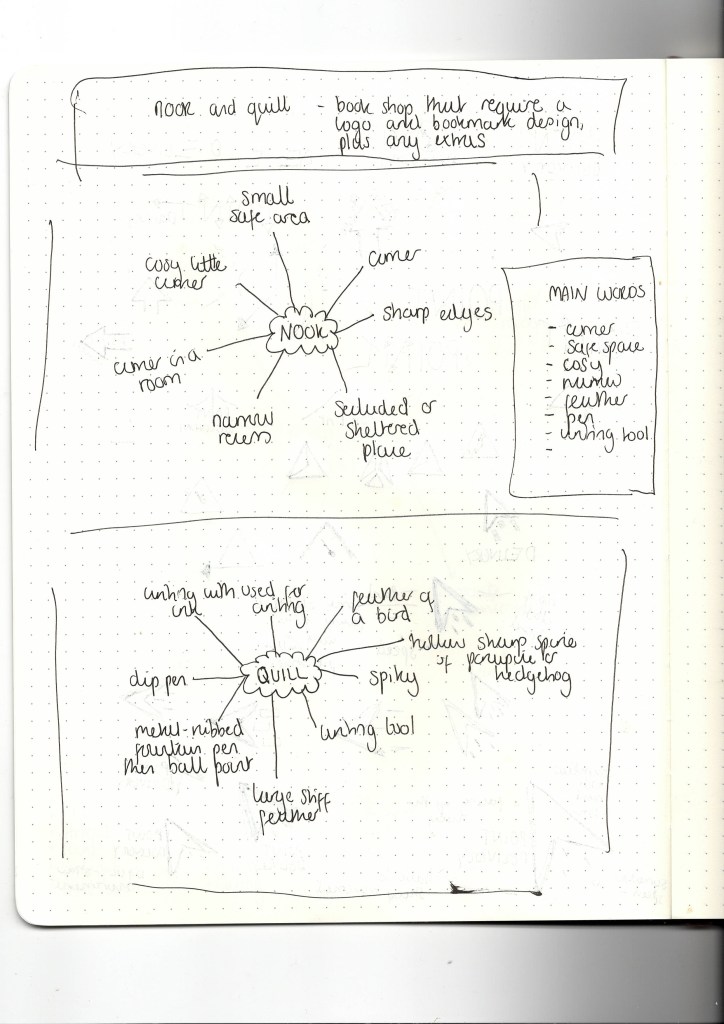 nook and quill - book shop that require a
logo and bookmark design,
plus any extras
small
safe area
cosy little
corner
corner
sharp edges
NOOK
corner in a
room
narrow
recess
secluded or
sheltered
place
MAIN WORDS
- corner
- safe space
- cosy
- narrow
- feather
- pen
- writing tool
-
writing with
ink
used for
writing
feather of
a bird
hollow sharp spine
of porcupine or
hedgehog
QUILL
dip pen
spiky
metal-nibbed
fountain pen
then ball point
writing tool
large stiff
feather